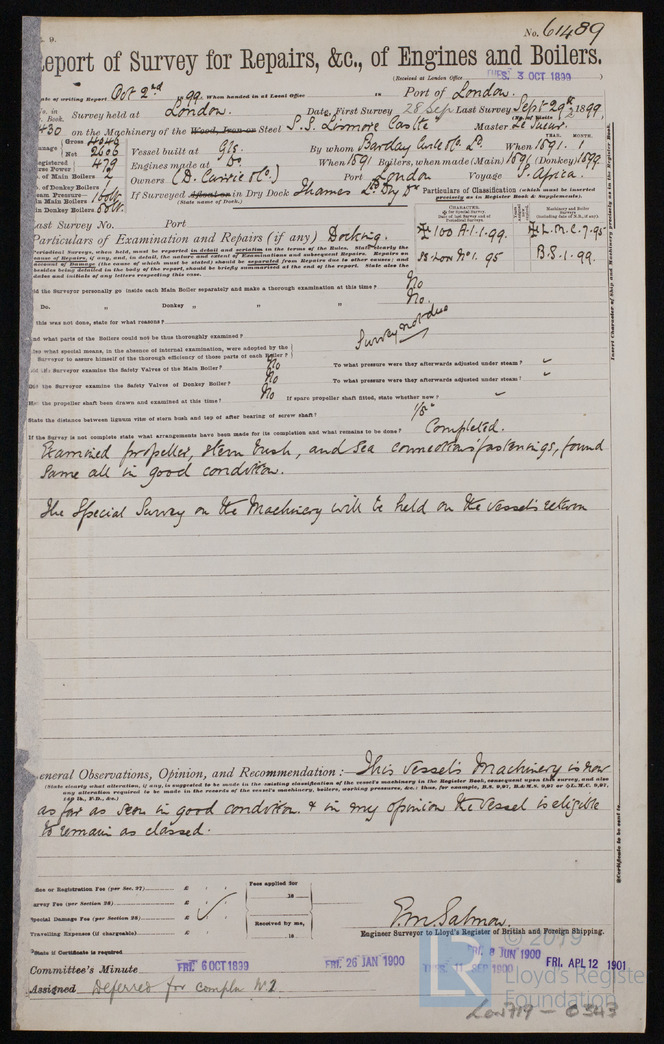 No. 61489
Report of Survey for Repairs, &c., of Engines and Boilers.
(Received at London Office TUES. 3 OCT 1899)
Date of writing Report Oct 2nd 1899. When handed in at Local Office 18 Port of London.
No. in Reg. Book. Survey held at London. Date, First Survey 28 Sep Last Survey Sept 29th 1899
(No. of Visits 2)
430 on the Machinery of the Wood, Iron or Steel S.S. Lismore Castle Master Le Sueur.
Tonnage Gross 4046 Net 2606 Vessel built at Gls. By whom Barclay Curle & Co. Ld. When 1891. 1
YEAR. MONTH.
Registered Horse Power 479 Engines made at Do When 1891 Boilers, when made (Main) 1891 (Donkey) 1899
No. of Main Boilers 2 Owners (D. Currie & Co.) Port London Voyage S. Africa.
No. of Donkey Boilers
Steam Pressure in Main Boilers 160 lb. If Surveyed Afloat or in Dry Dock Thames Ld. Dry Dk
(State name of Dock.)
in Donkey Boilers
Particulars of Classification (which must be inserted precisely as in Register Book & Supplements).
Last Survey No. Port
CHARACTER.
Machinery and Boiler Surveys
100 A.1. 1.99. L.M.C. 7.95
SS Lon No 1. 95 B.S. 1.99.
Particulars of Examination and Repairs (if any) Docking.
Did the Surveyor personally go inside each Main Boiler separately and make a thorough examination at this time? No
Do. " Donkey " " " " No.
If this was not done, state for what reasons? Survey not due
And what parts of the Boilers could not be thoroughly examined?
What special means, in the absence of internal examination, were adopted by the Surveyor to assure himself of the thorough efficiency of those parts of each Boiler?
Did the Surveyor examine the Safety Valves of the Main Boiler? No To what pressure were they afterwards adjusted under steam?
Did the Surveyor examine the Safety Valves of Donkey Boiler? No To what pressure were they afterwards adjusted under steam?
Has the propeller shaft been drawn and examined at this time? No If spare propeller shaft fitted, state whether new?
State the distance between lignum vitæ of stern bush and top of after bearing of screw shaft? 1/8"
If the Survey is not complete state what arrangements have been made for its completion and what remains to be done? Completed.
Examined propeller, stern bush, and sea connections fastenings, found
same all in good condition.
The Special Survey on the Machinery will be held on the vessels return
General Observations, Opinion, and Recommendation:— This vessel's Machinery is now
(State clearly what alteration, if any, is suggested to be made in the existing classification of the vessel's machinery in the Register Book, consequent upon this survey, and also any alteration required to be made in the records of the vessel's machinery, boilers, working pressures, &c.: thus, for example, B.S. 9,97, B.&M.S. 9,97 or L.M.C. 9,97, 140 lb., F.D., &c.)
as far as seen in good condition & in my opinion the vessel is eligible
to remain as classed.
Office or Registration Fee (per Sec. 27) £ : : Fees applied for
Survey Fee (per Section 28) £ : : 18
Special Damage Fee (per Section 28) £ : : Received by me,
Travelling Expenses (if chargeable) £ : : 18
E. M. Salmon.
Engineer Surveyor to Lloyd's Register of British and Foreign Shipping.
State if Certificate is required
Committee's Minute FRI. 6 OCT 1899 FRI. 26 JAN 1900 TUES. 11 SEP 1900 FRI. 8 JUN 1900 FRI. APL 12 1901
Assigned Deferred for compln No 2
© 2019
LR
Lloyd's Register
Foundation
Lon719 - 0343